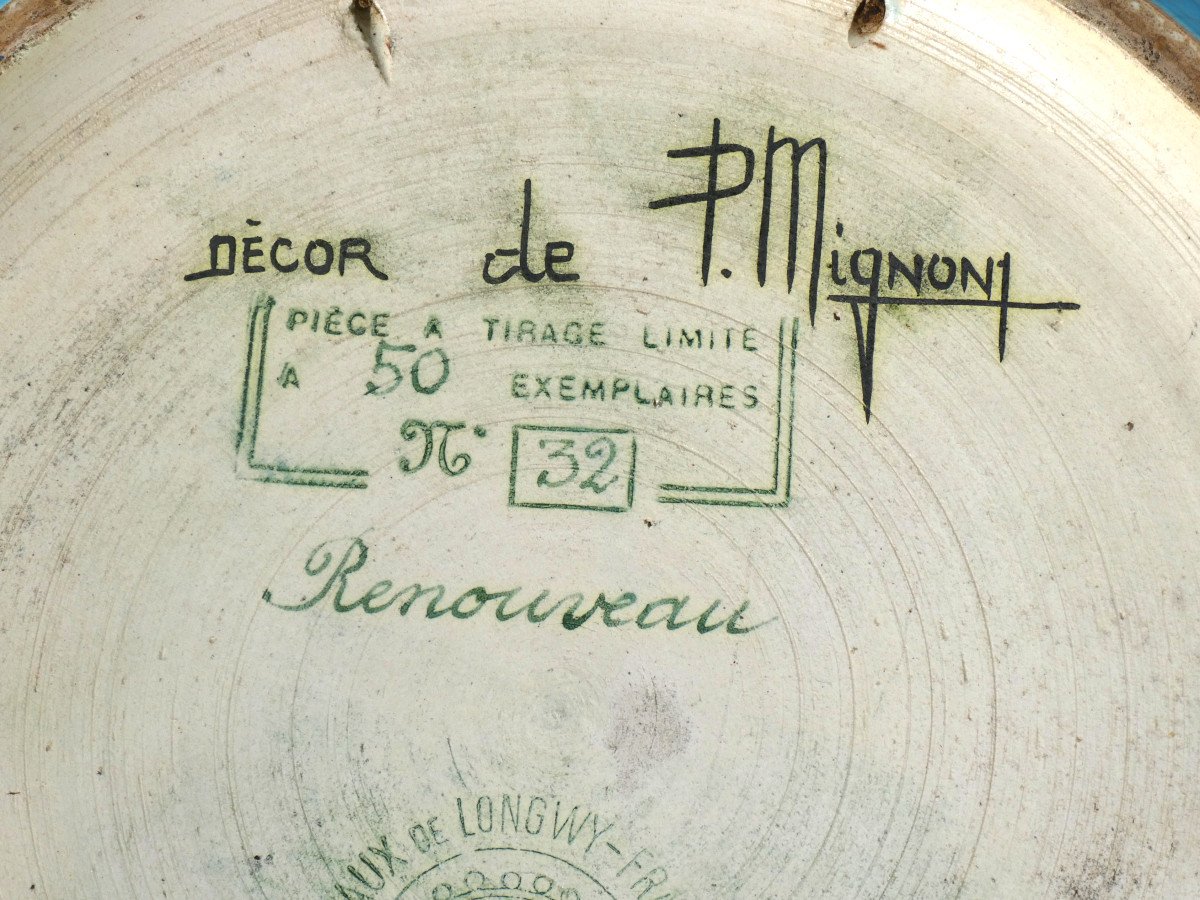 DÈCOR de P. Mignon
PIÈCE A TIRAGE LIMITÉ
A 50 EXEMPLAIRES
N° 32
Renouveau
AUX DE LONGWY-FR